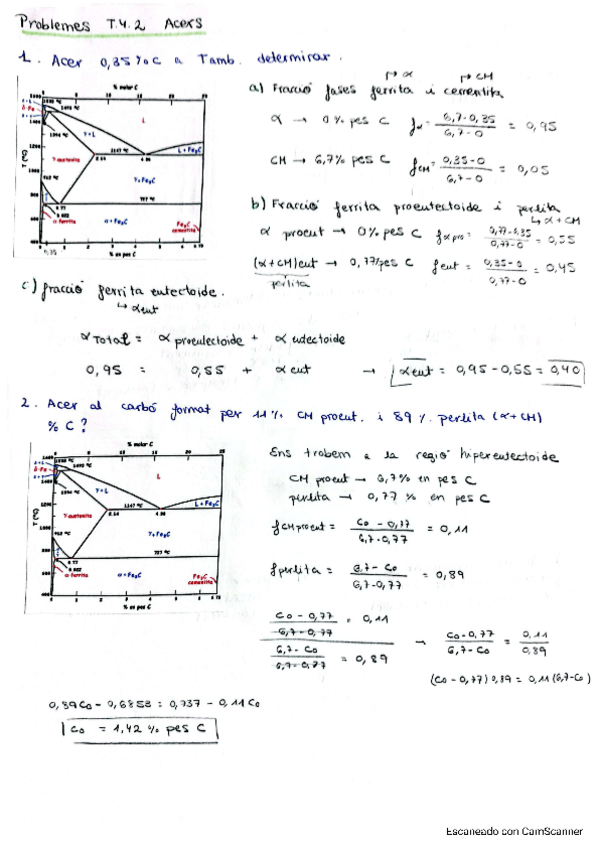 Problemes T.4.2 Acers
1. Acer 0,35 % C a Tamb. determinar.
a) Fracció fases ferrita i cementita
→ α
→ CM
α → 0 % pes C fα = (6,7-0,35)/(6,7-0) = 0,95
CM → 6,7% pes C fCM = (0,35-0)/(6,7-0) = 0,05
b) Fracció ferrita proeutectoide i perlita
↳ α + CM
α proeut → 0% pes C fα pro = (0,77-0,35)/(0,77-0) = 0,55
(α+CM)eut → 0,77%pes C feut = (0,35-0)/(0,77-0) = 0,45
perlita
% molar C
L
1495 ºC
1394 ºC
γ+L
1147 ºC
L + Fe₃C
γ-austenita
2.14
4.30
912 ºC
γ+Fe₃C
727 ºC
0.77
0.022
α-ferrita
α+Fe₃C
Fe₃C
cementita
T (ºC)
% en pes C
0,35
c) fracció ferrita eutectoide.
↳ αeut
α Total = α proeutectoide + α eutectoide
0,95 = 0,55 + α eut → αeut = 0,95 - 0,55 = 0,40
2. Acer al carbó format per 11 % CM proeut. i 89 %. perlita (α+CM)
% C?
% molar C
L
1495 ºC
1394 ºC
γ+L
1147 ºC
L + Fe₃C
γ-austenita
2.14
4.30
912 ºC
γ+Fe₃C
727 ºC
0.77
0.022
α-ferrita
α+Fe₃C
Fe₃C
cementita
T (ºC)
% en pes C
Ens trobem a la regió hipereutectoide
CM proeut → 6,7% en pes C
perlita → 0,77 % en pes C
fCM proeut = (Co - 0,77)/(6,7-0,77) = 0,11
fperlita = (6,7 - Co)/(6,7-0,77) = 0,89
(Co - 0,77)/(6,7-0,77) = 0,11
(6,7 - Co)/(6,7-0,77) = 0,89
→ (Co - 0,77)/(6,7 - Co) = 0,11/0,89
(Co - 0,77) 0,89 = 0,11 (6,7-Co)
0,89Co - 0,6853 = 0,737 - 0,11 Co
Co = 1,42 % pes C
Escaneado con CamScanner